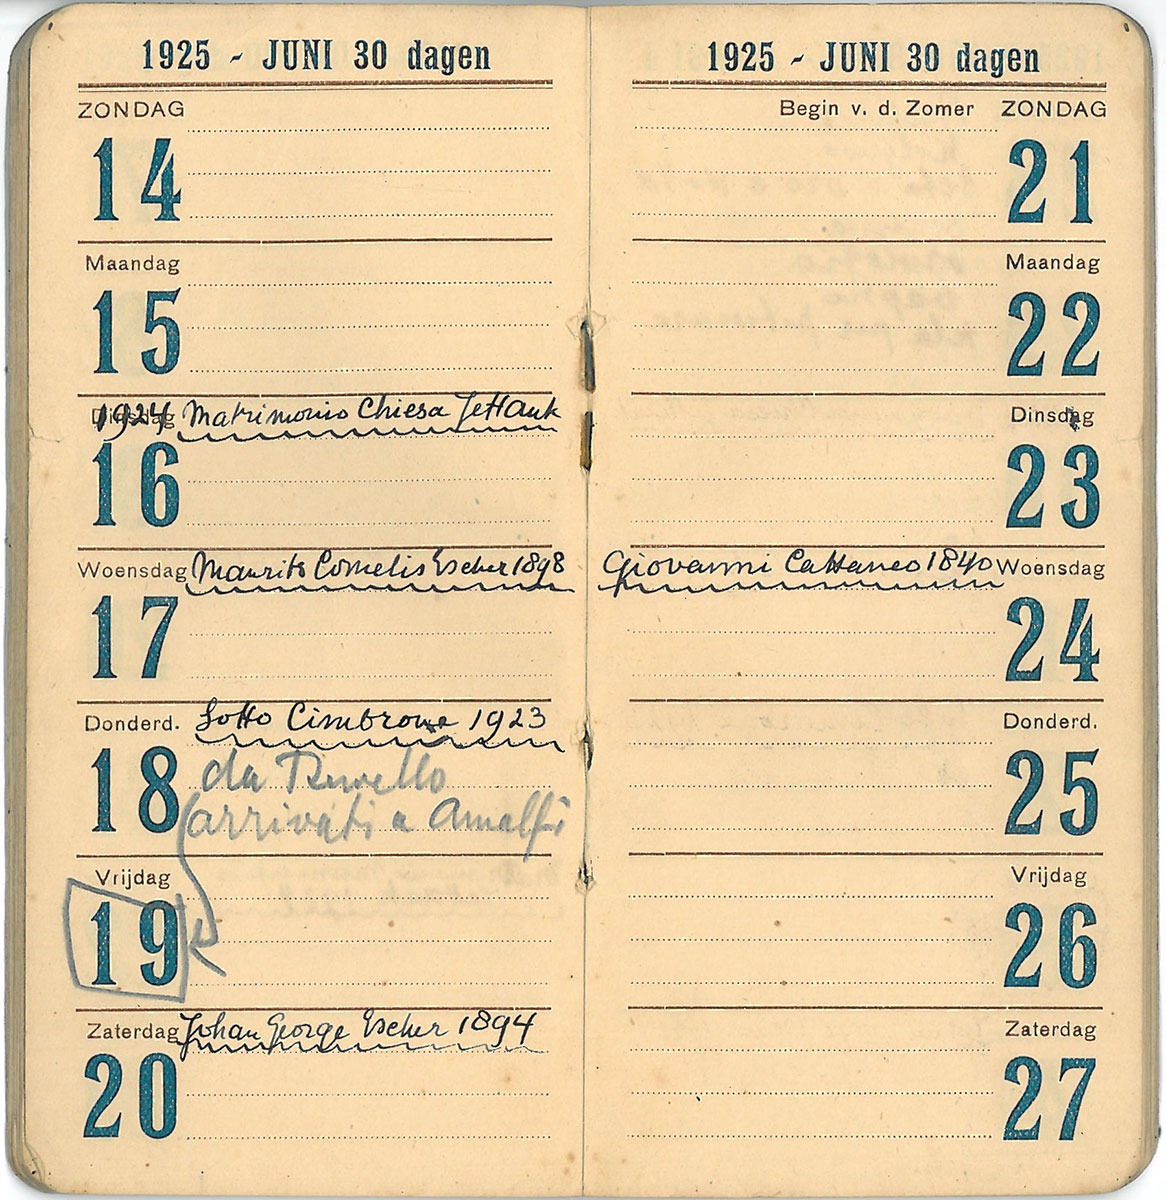 1925 - JUNI 30 dagen
ZONDAG
14
Maandag
15
Dinsdag
1924 Matrimonio Chiesa Jetta UK
16
Woensdag
Maurits Cornelis Escher 1898
17
Donderd.
Sotto Cimbrone 1923
18
da Ravello
arrivati a Amalfi
Vrijdag
19
Zaterdag
Johan George Escher 1894
20
1925 - JUNI 30 dagen
Begin v. d. Zomer ZONDAG
21
Maandag
22
Dinsdag
23
Giovanni Cattaneo 1840 Woensdag
24
Donderd.
25
Vrijdag
26
Zaterdag
27